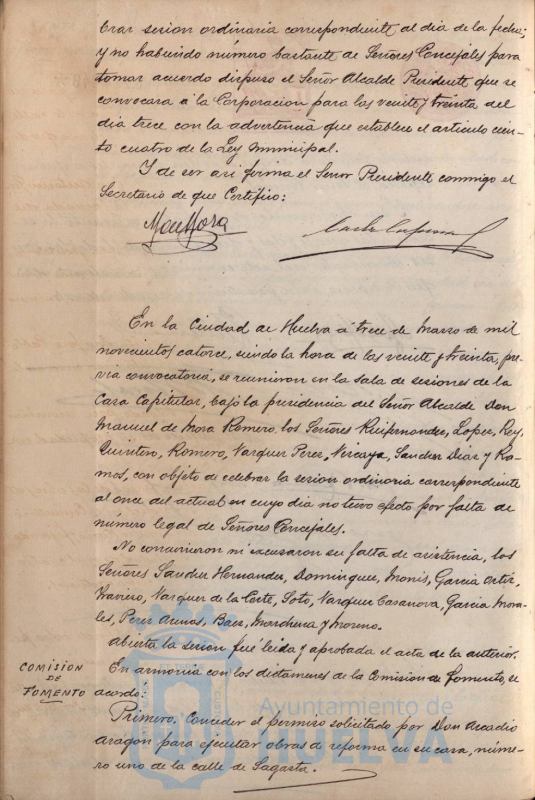 brar sesion ordinaria correspondiente al dia de la fecha;
y no habiendo número bastante de Señores Concejales para
tomar acuerdo dispuso el Señor Alcalde Presidente que se
convocara á la Corporacion para las veinte y treinta del
dia trece con la advertencia que establece el artículo cien-
to cuatro de la Ley Municipal.
Y de ser asi forma el Señor Presidente conmigo el
Secretario de que Certifico:
En la Ciudad de Huelva á trece de Marzo de mil
novecientos catorce, siendo la hora de las veinte y treinta, pre-
via convocatoria, se reunieron en la sala de sesiones de la
Casa Capitular, bajo la presidencia del Señor Alcalde Don
Manuel de Mora Romero, los Señores Ruifernandez, Lopez, Rey,
Quintero, Romero, Vazquez Perez, Vizcaya, Sanchez Diaz y Ra-
mos, con objeto de celebrar la sesion ordinaria correspondiente
al once del actual en cuyo dia no tuvo efecto por falta de
número legal de Señores Concejales.
No concurrieron ni excusaron su falta de asistencia, los
Señores Sanchez Hernandez, Dominguez, Monis, Garcia Ortiz,
Vazquez de la Corte, Soto, Vazquez Casanova, Garcia Mora-
les, Perez Armas, Baez, Marchena y Moreno.
Abierta la sesion fué leida y aprobada el acta de la anterior.
COMISION
DE
FOMENTO
En armonia con los dictamenes de la Comision de Fomento se
acordó:
Primero. Conceder el permiso solicitado por Don Arcadio
Aragón para ejecutar obras de reforma en su casa, núme-
ro uno de la calle de Sagasta.
Ayuntamiento de
HUELVA